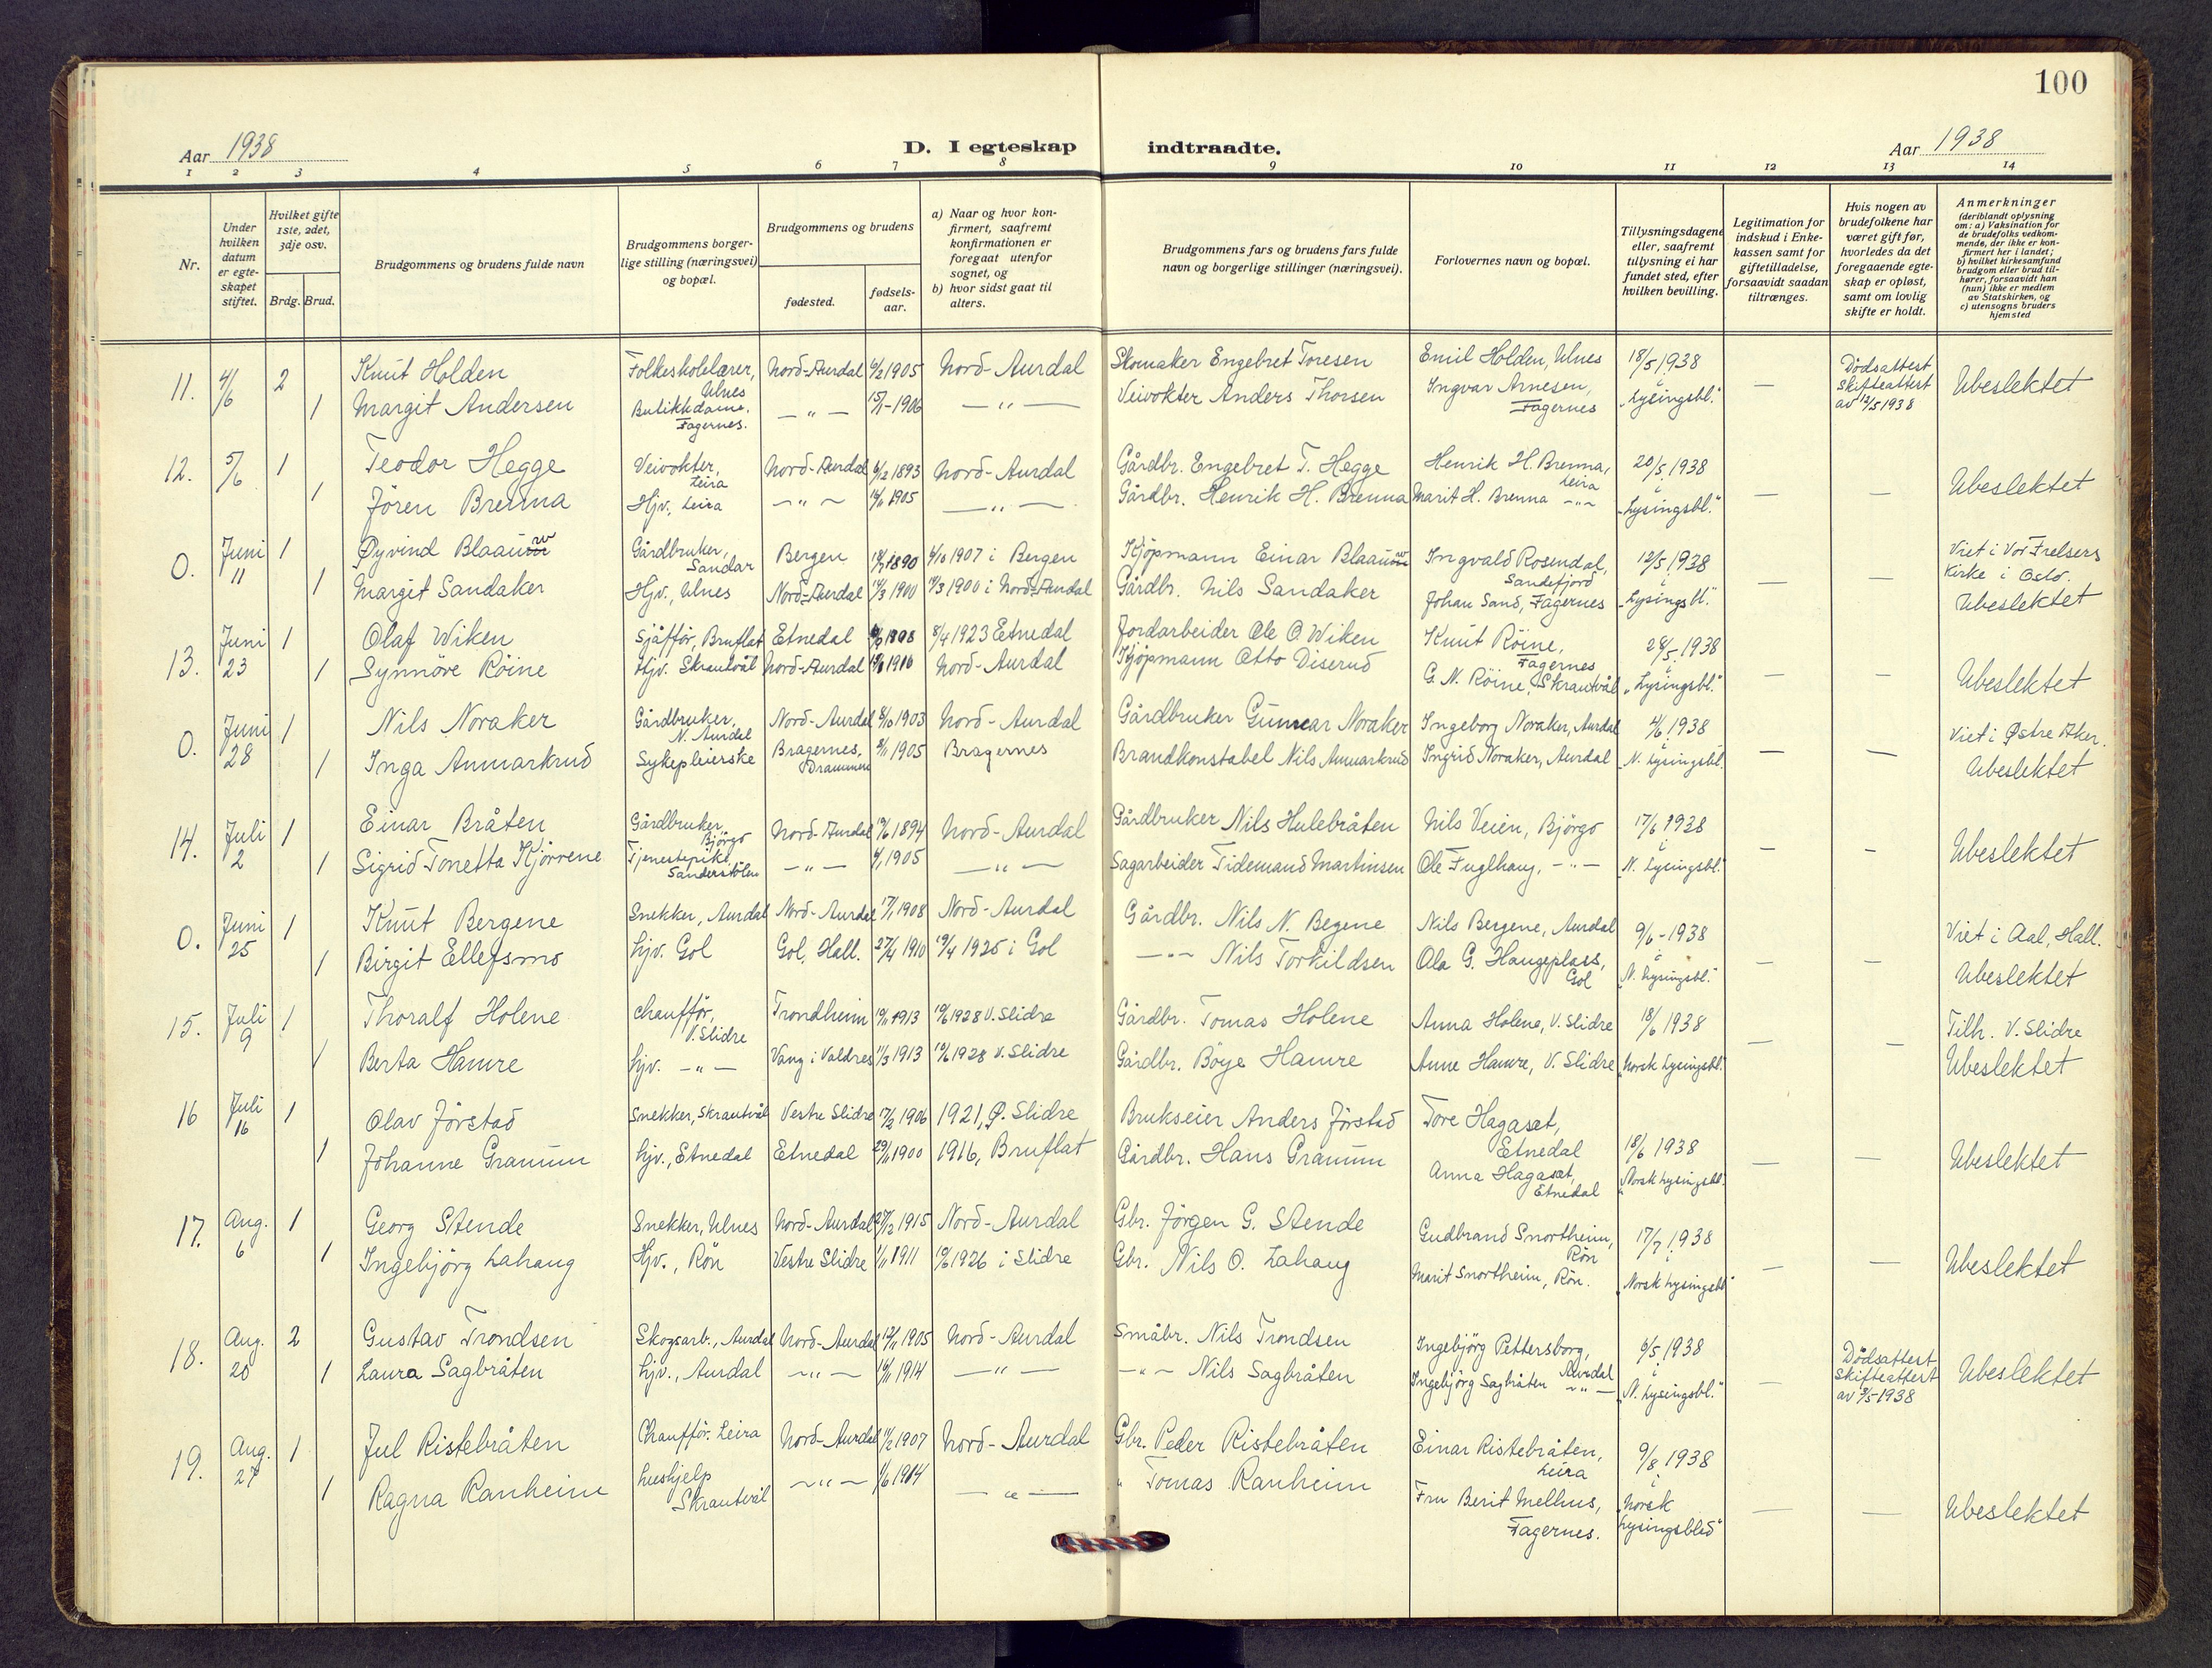 100
Aar 1938
D. I egteskap indtraadte.
Aar 1938
1 2 3 4 5 6 7 8 9 10 11 12 13 14
Nr.
Under hvilken datum er egte-skapet stiftet.
Hvilket gifte 1ste, 2det, 3dje osv.
Brdg. Brud.
Brudgommens og brudens fulde navn
Brudgommens borger-lige stilling (næringsvei) og bopæl.
Brudgommens og brudens
fødested.
fødsels-aar.
a) Naar og hvor kon-firmert, saafremt konfirmationen er foregaat utenfor sognet, og
b) hvor sidst gaat til alters.
Brudgommens fars og brudens fars fulde navn og borgerlige stillinger (næringsvei).
Forlovernes navn og bopæl.
Tillysningsdagene eller, saafremt tillysning ei har fundet sted, efter hvilken bevilling.
Legitimation for indskud i Enke-kassen samt for giftetilladelse, forsaavidt saadan tiltrænges.
Hvis nogen av brudefolkene har været gift før, hvorledes da det foregaaende egte-skap er opløst, samt om lovlig skifte er holdt.
Anmerkninger (deriblandt oplysning om: a) Vaksination for de brudefolks vedkom-mende, der ikke er kon-firmert her i landet; b) hvilket kirkesamfund brudgom eller brud til-hører, forsaavidt han (hun) ikke er medlem av Statskirken, og c) utensogns bruders hjemsted
11. 4/6 2 Knut Holden Folkeskolelærer, Ulnes Nord-Aurdal 1905 Nord-Aurdal Skomaker Engebret Toresen Emil Holden, Ulnes 18/5 1938 i — Dødsattest Skifteattest av 12/5 1938 Ubeslektet
1 Margit Andersen Butikkdame, Fagernes. — " — 15/1-1906 — " — Veivokter Anders Thorsen Ingvar Arnesen, Fagernes "Lysingsbl."
12. 5/6 1 Teodor Hegge Veivokter, Leira Nord-Aurdal 6/2 1893 Nord-Aurdal Gårdbr. Engebret T. Hegge Henrik H. Brenna, Leira 20/5 1938 i — — Ubeslektet
1 Jören Brenna Hjv. Leira — " — 1905 — " — Gårdbr. Henrik H. Brenna Marit H. Brenna — " — "Lysingsbl."
0. Juni 11 1 Øyvind Blaauw Gårdbruker, Sandar Bergen 1890 1907 i Bergen Kjöpmann Einar Blaauw Ingvald Rosendal, Sandefjord 12/5 1938 i — — Viet i Vor Frelsers Kirke i Oslo.
1 Margit Sandaker Hjv., Ulnes Nord-Aurdal 1900 1900 i Nord-Aurdal Gårdbr. Nils Sandaker Johan Sand, Fagernes "Lysingsbl." Ubeslektet
13. Juni 23 1 Olaf Wiken Sjåfför, Bruflat Etnedal 8/4 1923 Etnedal Jordarbeider Ole O. Wiken Knut Röine, Fagernes 28/5 1938 i — — Ubeslektet
1 Synnöve Röine Hjv. Skrautvål Nord-Aurdal 1916 Nord-Aurdal Kjöpmann Otto Diserud G. N. Röine, Skrautvål "Lysingsbl."
0. Juni 28 1 Nils Noraker Gårdbruker, N. Aurdal Nord-Aurdal 1903 Nord-Aurdal Gårdbruker Gunnar Noraker Ingeborg Noraker, Aurdal 4/6 1938 i — — Viet i Østre Aker.
1 Inga Anmarkrud Sykepleierske Bragernes, Drammen 1905 Bragernes Brandkonstabel Nils Anmarkrud Ingrid Noraker, Aurdal "N. Lysingsbl. Ubeslektet
14. Juli 2 1 Einar Bråten Gårdbruker, Björgo Nord-Aurdal 1894 Nord-Aurdal Gårdbruker Nils Hulebråten Nils Veien, Björgo 17/6 1938 i — — Ubeslektet
1 Sigrid Tonetta Kjörrene Tjenestepike, Sanderstölen — " — 1905 — " — Sagarbeider Tidemand Martinsen Ole Fuglhaug, — " — "N. Lysingsbl."
0. Juni 25 1 Knut Bergene Snekker, Aurdal Nord-Aurdal 17/1 1908 Nord-Aurdal Gårdbr. Nils N. Begene Nils Bergene, Aurdal 9/6-1938 i — — Viet i Aal, Hall.
1 Birgit Ellefsmo hjv. Gol Gol, Hall. 27/4 1910 19/4 1925 i Gol — " — Nils Torkildsen Ola G. Haugeplass, Gol "N. Lysingsbl." Ubeslektet
15. Juli 9 1 Thoralf Holene chaufför, V. Slidre Trondheim 1913 1928 V. Slidre Gårdbr. Tomas Holene Anna Holene, V. Slidre 18/6 1938 — — Tilh. V. Slidre
1 Berta Hamre hjv. — " — Vang i Valdres 11/3 1913 1928 V. Slidre Gårdbr. Böye Hamre Anne Hamre, V. Slidre "Norsk Lysingsbl." Ubeslektet
16 Juli 16 1 Olav Jörstad Snekker, Skrautvål Vestre Slidre 17/3 1906 1921, Ø. Slidre Brukseier Anders Jörstad Tore Hagaset, Etnedal 18/6 1938 — — Ubeslektet
1 Johanne Gramm hjv., Etnedal Etnedal 29/1 1900 1916, Bruflat Gårdbr. Hans Gramm Anna Hagaset, Etnedal "Norsk Lysingsbl."
17. Aug. 6 1 Georg Stende Snekker, Ulnes Nord-Aurdal 1915 Nord-Aurdal Gbr. Jörgen G. Stende Gudbrand Snortheim, Rön 17/7 1938 i — — Ubeslektet
1 Ingebjörg Lahaug Hjv., Rön Vestre Slidre 1911 1926 i Slidre Gbr. Nils O. Lahaug Marit Snortheim, Rön. "Norsk Lysingsbl."
18. Aug. 20 2 Gustav Trondsen Skogsarb., Aurdal Nord-Aurdal 1905 Nord-Aurdal Småbr. Nils Trondsen Ingebjörg Pettersborg, Aurdal 6/5 1938 i — Dödsattest Skifteattest av 3/5-1938 Ubeslektet
1 Laura Sagbråten hjv., Aurdal — " — 1914 — " — — " — Nils Sagbråten Ingebjörg Sagbråten — " — "N. Lysingsbl."
19. Aug. 27 1 Jul Ristebråten Chaufför, Leira Nord-Aurdal 1907 Nord-Aurdal Gbr. Peder Ristebråten Einar Ristebråten, Leira 9/8 1938 i — — Ubeslektet
1 Ragna Ranheim hushjelp Skrautvål — " — 1914 — " — " Tomas Ranheim Fru Berit Melhus, Fagernes. "Norsk Lysingsblad"